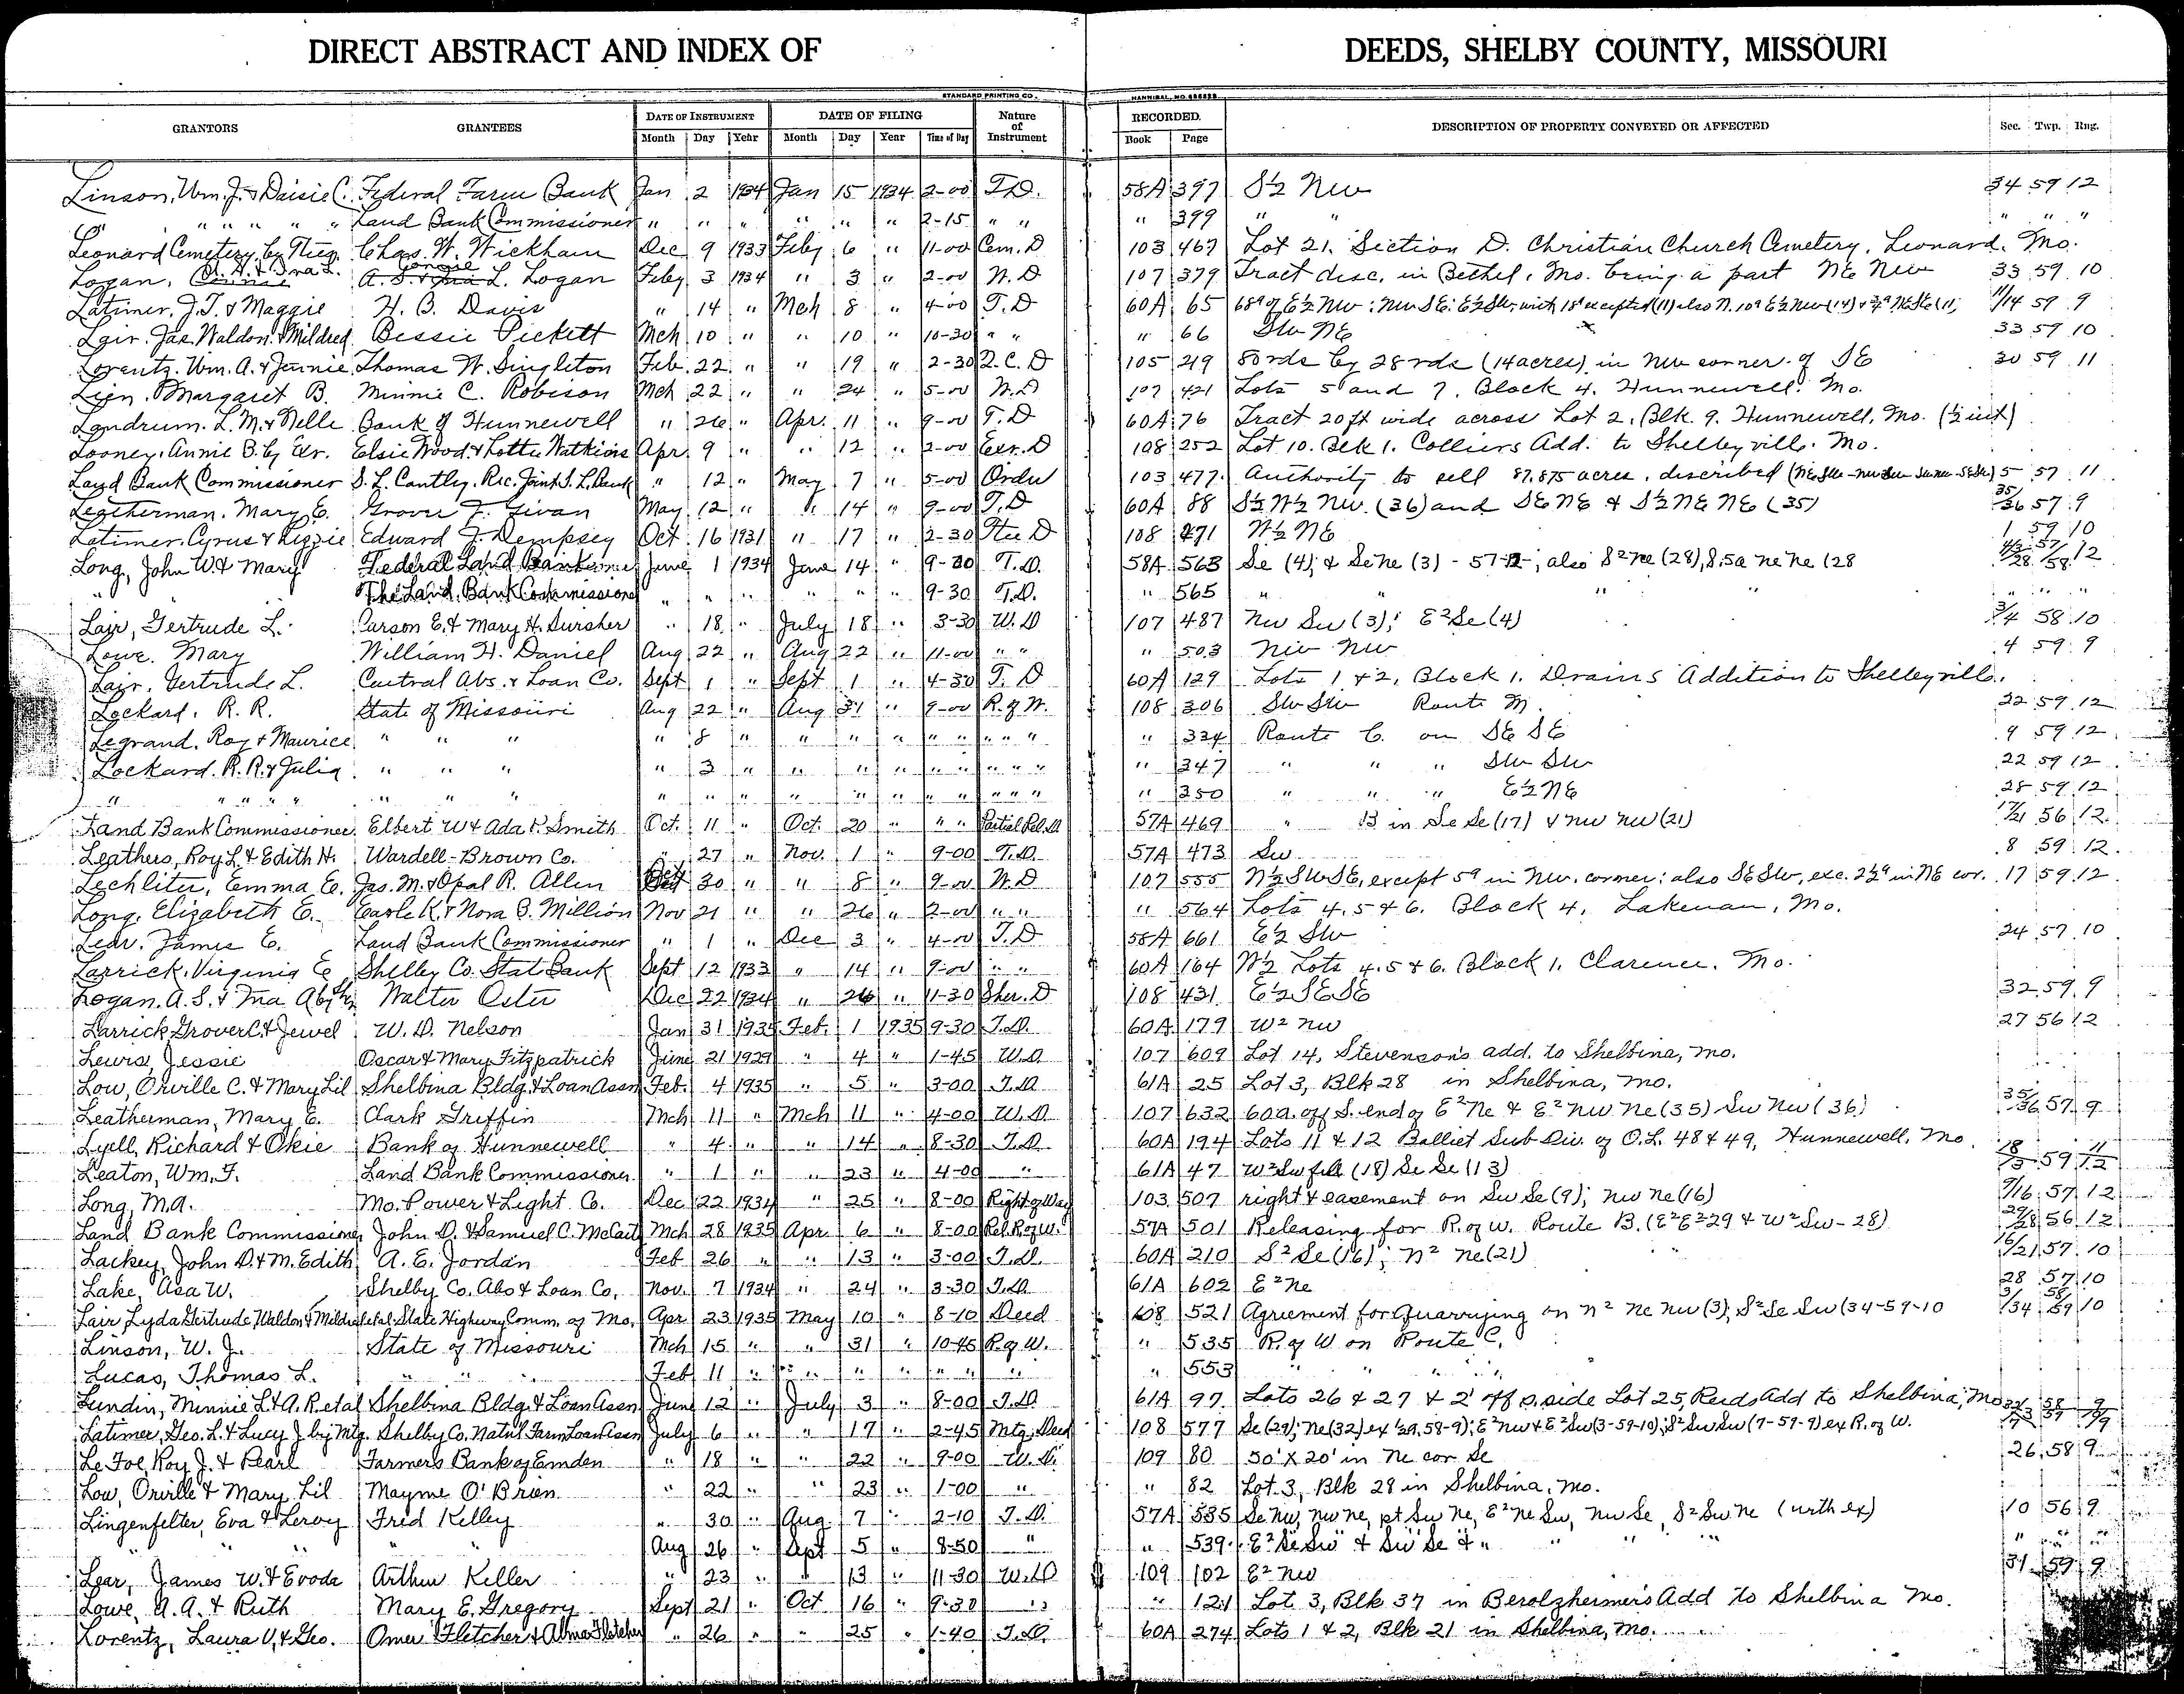 DIRECT ABSTRACT AND INDEX OF DEEDS, SHELBY COUNTY, MISSOURI
STANDARD PRINTING CO. HANNIBAL, NO.
GRANTORS GRANTEES DATE OF INSTRUMENT DATE OF FILING Nature of Instrument RECORDED. DESCRIPTION OF PROPERTY CONVEYED OR AFFECTED Sec. Twp. Rng.
Month Day Year Month Day Year Time of Day Book Page
Linson, Wm. J. & Daisie C. Federal Farm Bank Jan 2 1934 Jan 15 1934 2-00 T.D. 58A 397 S½ NW 34 59 12
" " " " " Land Bank Commissioner " " " " " " 2-15 " " " 399 " " " " "
Leonard Cemetery, by Chas. W. Wickham Dec 9 1933 Feby 6 " 11-00 Cem. D 103 467 Lot 21. Section D. Christian Church Cemetery, Leonard. Mo.
Logan, L. Logan Feby 3 1934 " 3 " 2-00 W. D 107 379 Tract disc. in Bethel, Mo. being a part NE NW 33 59 10
Latimer, J. T. & Maggie H. B. Davis " 14 " Mch 8 " 4-00 T. D 60A 65 68ᵃ of E½ NW; NW SE: E½ SW, with 18ᵃ excepted (11) also N. 10ᵃ E½ NW (14) & NESE (11) 11/14 59 9
Lair. Jas. Waldon & Mildred Bessie Pickett Mch 10 " " 10 " 10-30 " " " 66 SW NE 33 57 10
Lorentz. Wm. A. & Jennie Thomas W. Singleton Feb. 22 " " 19 " 2-30 Q. C. D 105 219 80 rds by 28 rds (14 acres) in NW corner of SE 30 59 11
Lien. Margaret B. Minnie C. Robison Mch 22 " " 24 " 5-00 W. D 107 421 Lots 5 and 7, Block 4. Hunnewell. Mo.
Landrum. L. M. & Nelle Bank of Hunnewell " 26 " Apr. 11 " 9-00 T. D 60A 76 Tract 20 ft wide across Lot 2. Blk. 9. Hunnewell, Mo. (½ int)
Looney, Annie B. by Exr. Elsie Wood & Lottie Watkins Apr. 9 " " 12 " 2-00 Exr. D 108 252 Lot 10. Blk 1. Colliers Add. to Shelbyville. Mo.
Land Bank Commissioner S. L. Cantley, Rec. Joint S. L. Bank " 12 " May 7 " 5-00 Order 103 477 Authority to sell 87.875 acres, described 5 57 11
Leatherman. Mary E. Grover F. Givan May 12 " " 14 " 9-00 T. D 60A 88 S½ N½ NW. (36) and SE NE & S½ NE NE (35) 35/36 57 9
Latimer, Cyrus & Lizzie Edward J. Dempsey Oct 16 1931 " 17 " 2-30 Tr. D 108 271 W½ NE 1 59 10
Long, John W. & Mary Federal Land Bank June 1 1934 June 14 " 9-30 T.D. 58A 563 Se (4); & SeNe (3) - 57-12; also S² ne (28), S. 5a ne ne (28 12
" The Land Bank Commissioner " " " " " " 9-30 T.D. " 565 " " " " " " "
Lair, Gertrude L. Carson E. & Mary H. Sursher " 18 " July 18 " 3-30 W. D 107 487 NW SW (3); E² Se (4) 3/4 58 10
Lowe. Mary William H. Daniel Aug 22 " Aug 22 " 11-00 " " " 503 NW NW 4 59 9
Lair, Gertrude L. Central Abs. & Loan Co. Sept 1 " Sept 1 " 4-30 T. D 60A 129 Lots 1 & 2, Block 1. Drains Addition to Shelbyville.
Lockard. R. R. State of Missouri Aug 22 " Aug 31 " 9-00 R. of W. 108 306 SW SW Route M. 22 59 12
Legrand. Roy & Maurice " " " " 8 " " " " " " " " " " 334 Route C. on SE SE 9 59 12
Lockard. R. R. & Julia " " " " 3 " " " " " " " " " " 347 " " " SW SW 22 59 12
" " " " " " " " " " " " " " " " " " " " 350 " " " E½ NE 28 59 12
Land Bank Commissioner. Elbert W & Ada P. Smith Oct. 11 " Oct. 20 " " " Partial Rel. D 57A 469 " B in Se Se (17) & NW NW (21) 17/21 56 12
Leathers, Roy L. & Edith H. Wardell-Brown Co. " 27 " Nov. 1 " 9-00 T.D. 57A 473 SW 8 59 12
Lechliter, Emma E. Jas. M. & Opal R. Allen Oct 30 " " 8 " 9-00 W. D 107 555 N½ SW SE, except 5ᵃ in NW. corner; also SE SW, exc. 2½ᵃ in NE cor. 17 59 12
Long, Elizabeth E. Earle K. & Nora B. Million Nov 21 " " 26 " 2-00 " " " 564 Lots 4. 5 & 6. Block 4, Lakenan, Mo.
Lear. James E. Land Bank Commissioner " 1 " Dec 3 " 4-00 T. D 58A 661 E½ SW 24 57 10
Larrick, Virginia E Shelby Co. State Bank Sept 12 1933 " 14 " 9-00 " " 60A 164 N½ Lots 4. 5 & 6. Block 1. Clarence. Mo.
Logan. A. S. & Ina by Sh. Walter Oster Dec 22 1934 " 26 " 11-30 Sher. D 108 431 E½ SE SE 32 59 9
Larrick Grover C. & Jewel W. D. Nelson Jan 31 1935 Feb. 1 1935 9-30 T.D. 60A 179 W² NW 27 56 12
Lewis, Jessie Oscar & Mary Fitzpatrick June 21 1929 " 4 " 1-45 W.D. 107 609 Lot 14, Stevenson's add. to Shelbina, Mo.
Low, Orville C. & Mary Lil Shelbina Bldg. & Loan Assn Feb. 4 1935 " 5 " 3-00 T.D. 61A 25 Lot 3, Blk 28 in Shelbina, Mo.
Leatherman, Mary E. Clark Griffin Mch 11 " Mch 11 " 4-00 W.D. 107 632 60a. off S. end of E² Ne & E² NW Ne (35) SW NW (36) 35/36 57 9
Lyell, Richard & Okie Bank of Hunnewell " 4 " " 14 " 8-30 T.D. 60A 194 Lots 11 & 12 Balliet Sub Div. of O.L. 48 & 49, Hunnewell, Mo
Leaton, Wm. F. Land Bank Commissioner " 1 " " 23 " 4-00 " 61A 47 W² SW (18) Se Se (13) 18/13 59 11/12
Long, M.A. Mo. Power & Light Co. Dec 22 1934 " 25 " 8-00 Right of Way 103 507 right & easement on SW Se (9); NW Ne (16) 9/16 57 12
Land Bank Commissioner John D. & Samuel C. McCart Mch 28 1935 Apr 6 " 8-00 Rel. R. of W. 57A 501 Releasing for R. of W. Route B. (E² E² 29 & W² SW - 28) 29/28 56 12
Lackey, John D. & M. Edith A. E. Jordan Feb 26 " " 13 " 3-00 T.D. 60A 210 S² Se (16); N² Ne (21) 16/21 57 10
Lake, Asa W. Shelby Co. Abs & Loan Co. Nov. 7 1934 " 24 " 3-30 T.D. 61A 602 E² Ne 28 57 10
Lair, Lyda Gertrude, Waldon & Mildred State Highway Comm. of Mo. Apr 23 1935 May 10 " 8-10 Deed 108 521 Agreement for Quarrying on N² Ne NW (3); S² Se SW (34-59-10 3/34 58/59 10
Linson, W. J. State of Missouri Mch 15 " " 31 " 10-45 R. of W. " 535 R. of W on Route C.
Lucas, Thomas L. " " " Feb 11 " " " " " " " 553 " " " "
Lundin, Minnie L. & A. R. etal Shelbina Bldg. & Loan Assn June 12 " July 3 " 8-00 T.D. 61A 97 Lots 26 & 27 & 2' off S. side Lot 25, Reeds Add to Shelbina, Mo
Latimer, Geo. L. & Lucy J. by Mtg. Shelby Co. Natnl Farm Loan Assn July 6 " " 17 " 2-45 Mtg. Deed 108 577 Se (29); Ne (32) ex ½a, 58-9); E² NW & E² SW (3-59-10); S² SW SW (7-59-9) ex R. of W.
Le Foe, Roy J. & Pearl Farmers Bank of Emden " 18 " " 22 " 9-00 W. D. 109 80 50' X 20' in Ne cor Se 26 58 9
Low, Orville & Mary Lil Mayme O'Brien " 22 " " 23 " 1-00 " " 82 Lot 3, Blk 28 in Shelbina, Mo.
Lingenfelter, Eva & Leroy Fred Kelley " 30 " Aug 7 " 2-10 T.D. 57A 535 Se NW, NW Ne, pt SW Ne, E² Ne SW, NW Se, S² SW Ne (with ex) 10 56 9
" " " " Aug 26 " Sept 5 " 8-50 " " 539 E² Se SW & SW Se & " " " " " " "
Lear, James W. & Evoda Arthur Keller " 23 " " 13 " 11-30 W.D 109 102 E² NW 31 59 9
Lowe, A. A. & Ruth Mary E. Gregory Sept 21 " Oct 16 " 9-30 " " 121 Lot 3, Blk 37 in Berolzhermers Add to Shelbina Mo.
Lorentz, Laura V. & Geo. Omer Fletcher & Alma Fletcher " 26 " " 25 " 1-40 T.D. 60A 274 Lots 1 & 2, Blk 21 in Shelbina, Mo.